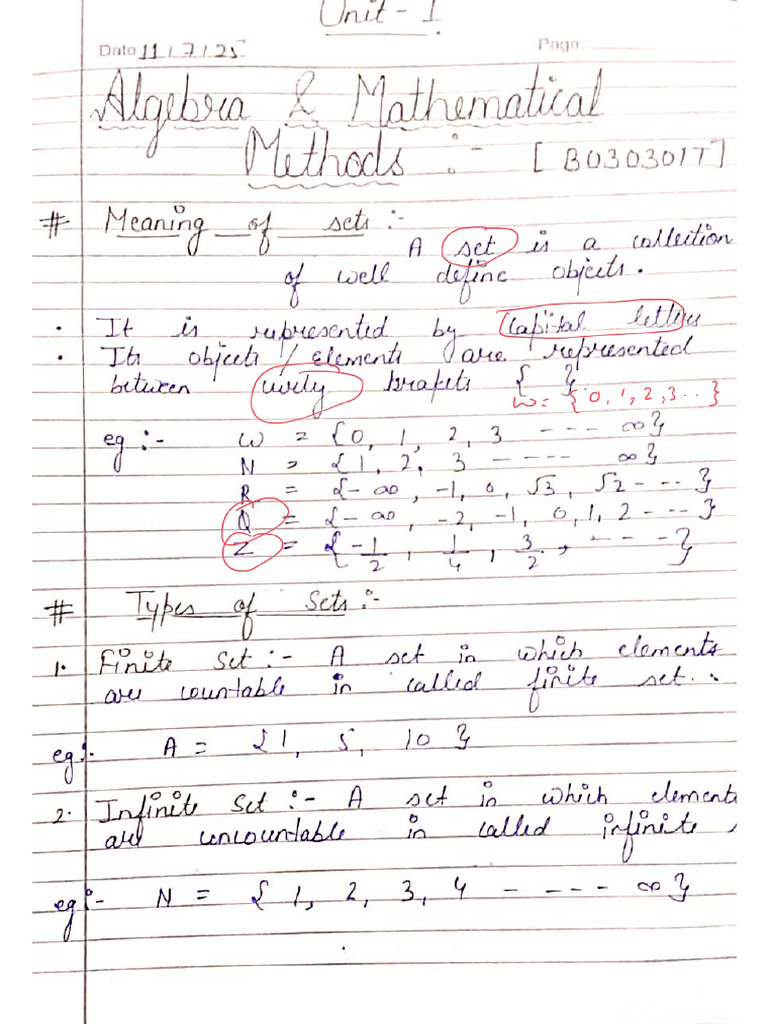 Unit - I
Date 11/7/25 Page
Algebra & Mathematical
Methods :- [B030301T]
# Meaning of sets :-
A set is a collection
of well define objects.
· It is represented by capital letters
· Its objects / elements are represented
between curly brakets { }
W = {0, 1, 2, 3 ...}
eg :- W = {0, 1, 2, 3 ---- ∞}
N = {1, 2, 3 ----- ∞}
R = {-∞, -1, 0, √3, √2 ----}
Q = {-∞, -2, -1, 0, 1, 2 ----}
Z = {-1/2, 1/4, 3/2, -----}
# Types of Sets :-
1. Finite Set :- A set in which elements
are countable in called finite set.
eg:- A = {1, 5, 10}
2. Infinite Set :- A set in which element
are uncountable in called infinite
eg:- N = {1, 2, 3, 4 ----- ∞}